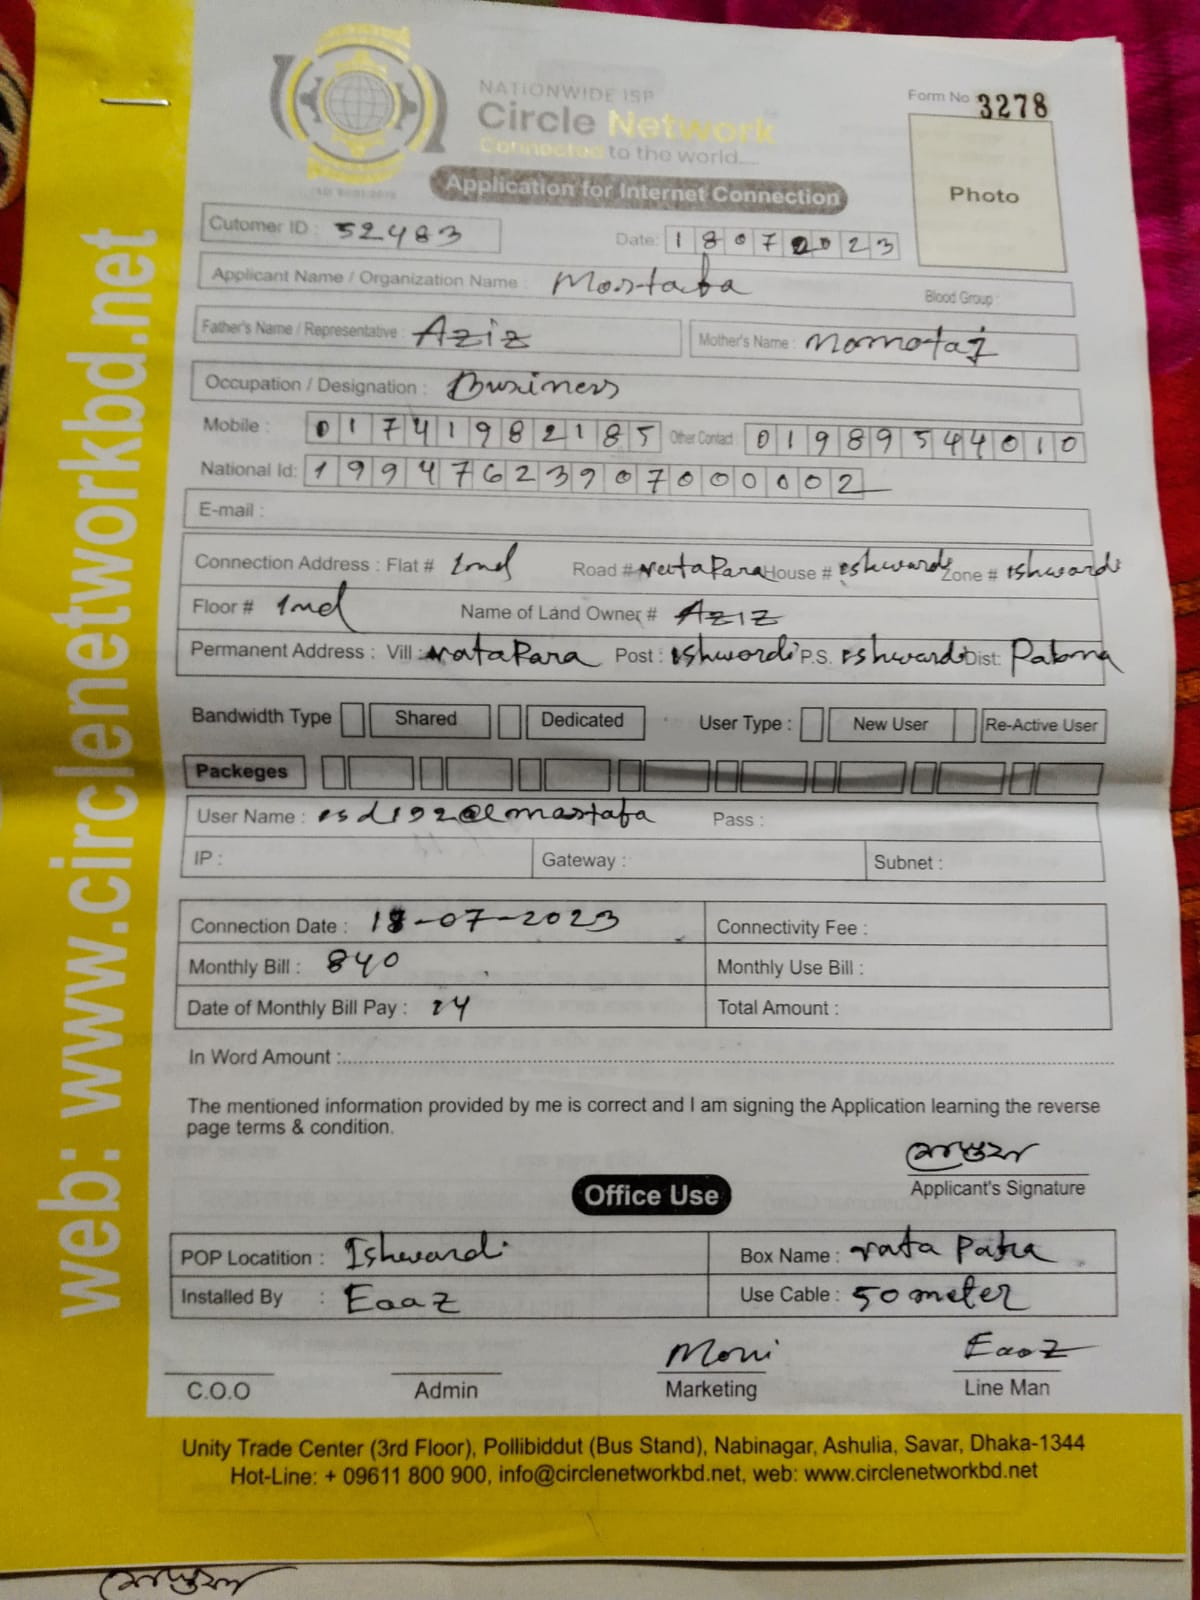 NATIONWIDE ISP
Circle Network
Connected to the world....
Form No 3278
Photo
Application for Internet Connection
Cutomer ID : 52483 Date: 18072023
Applicant Name / Organization Name : Mostafa Blood Group :
Father's Name / Representative : Aziz Mother's Name : Momotaj
Occupation / Designation : Business
Mobile : 01741982185 Other Contact : 01989544010
National Id: 19947623907000002
E-mail :
Connection Address : Flat # 2nd Road # NutaPara House # eshwardi Zone # ishwardi
Floor # 2nd Name of Land Owner # AZIZ
Permanent Address : Vill : NataPara Post : ishwordi P.S. eshwardi Dist: Pabna
Bandwidth Type Shared Dedicated User Type : New User Re-Active User
Packeges
User Name : esd192@emostafa Pass :
IP : Gateway : Subnet :
Connection Date : 18-07-2023 Connectivity Fee :
Monthly Bill : 840 Monthly Use Bill :
Date of Monthly Bill Pay : 24 Total Amount :
In Word Amount :
The mentioned information provided by me is correct and I am signing the Application learning the reverse
page terms & condition.
মোস্তফা
Applicant's Signature
Office Use
POP Locatition : Ishwardi Box Name : nata Para
Installed By : Eaaz Use Cable : 50 meter
Moni Eaaz
C.O.O Admin Marketing Line Man
Unity Trade Center (3rd Floor), Pollibiddut (Bus Stand), Nabinagar, Ashulia, Savar, Dhaka-1344
Hot-Line: + 09611 800 900, info@circlenetworkbd.net, web: www.circlenetworkbd.net
web: www.circlenetworkbd.net
মোস্তফা